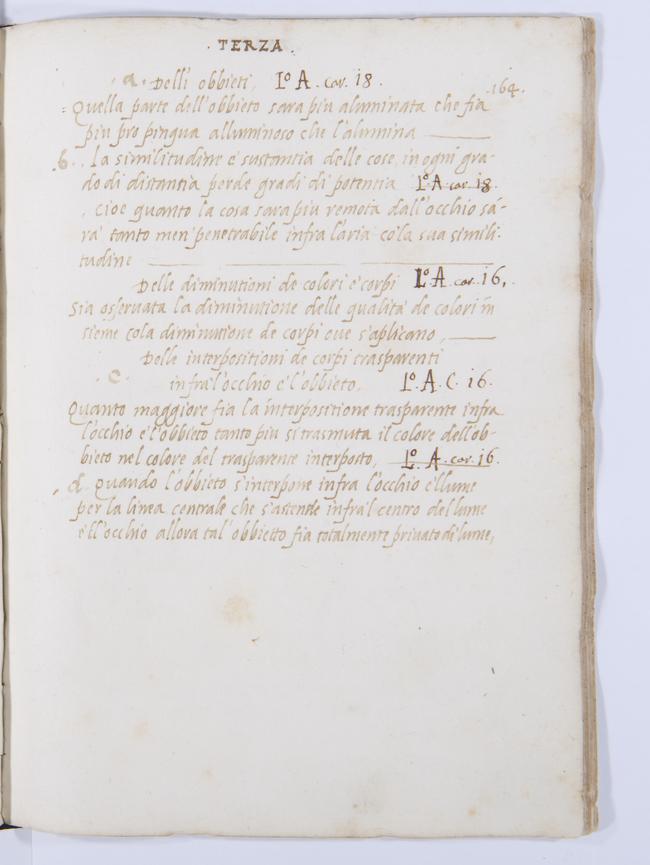 . TERZA .
. a . Delli obbieti, Lo A . car. 18 .
.164.
= Quella parte dell'obbieto sara piu aluminata che fia
piu propingua alluminoso che l'alumina
.b. . la similitudine e sustantia delle cose, in ogni gra-
do di distantia perde gradi di potentia Lo. A car 18
, cioe quanto la cosa sara piu remota dall'occhio sa-
ra' tanto men' penetrabile infra l'aria co'la sua simili.
tudine
Delle diminutioni de colori e' corpi Lo. A . car. 16,
Sia osseruata la diminutione delle qualita de colori in
sieme cola diminutione de corpi oue s'aplicano,
Delle interpositioni de corpi trasparenti
. C . infra l'occhio e l'obbieto, Lo. A. C. 16.
Quanto maggiore fia la interpositione trasparente infra
l'occhio e l'obbieto tanto piu si trasmuta il colore dell'ob-
bieto nel colore del trasparente interposto, Lo. A. car. 16
, d. Quando l'obbieto s'interpone infra l'occhio e'llume
per la linea centrale che s'astende infra'l centro del lume
e'll'occhio allora tal'obbietto fia totalmente priuato di lume,